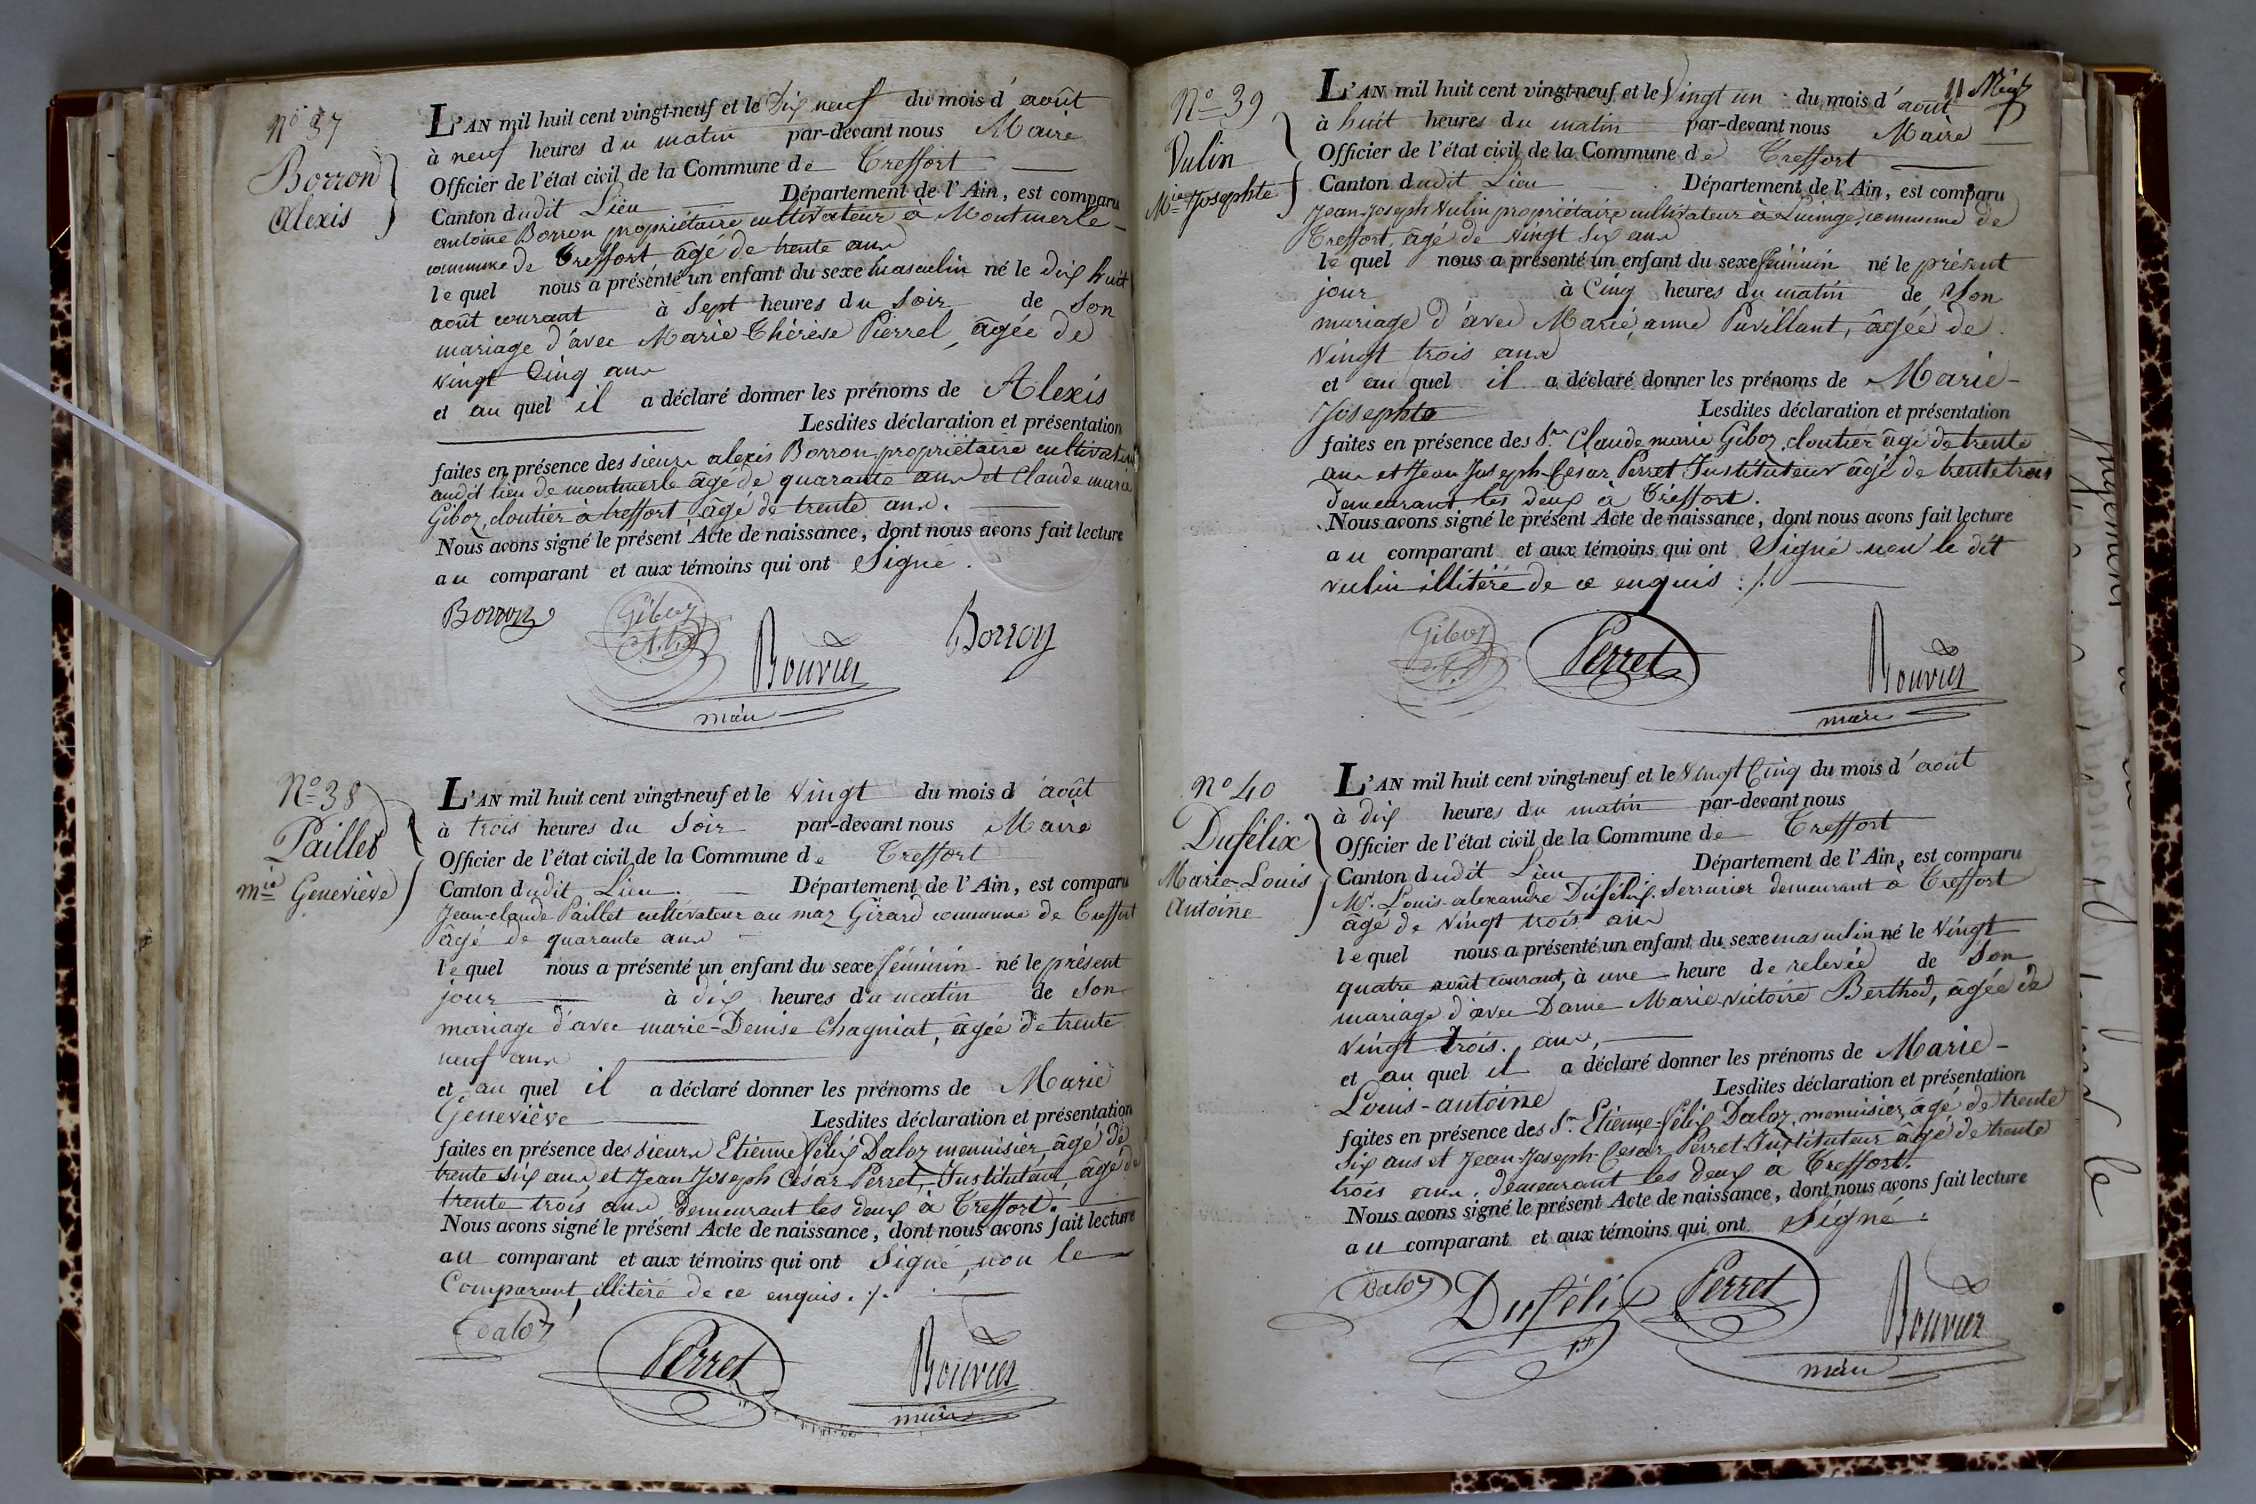 N° 37
Borron
Alexis
L'AN mil huit cent vingt-neuf et le Dix neuf du mois d'août
à neuf heures du matin par-devant nous Maire
Officier de l'état civil de la Commune de Treffort
Canton dudit Lieu Département de l'Ain, est comparu
antoine Borron propriétaire cultivateur à Montmerle
commune de Treffort âgé de trente ans
lequel nous a présenté un enfant du sexe masculin né le dix huit
août courant à Sept heures du Soir de Son
mariage d'avec Marie Thérèse Pierrel, âgée de
vingt Cinq ans
et au quel il a déclaré donner les prénoms de Alexis
Lesdites déclaration et présentation
faites en présence des sieurs alexis Borron propriétaire cultivateur
audit lieu de montmerle âgé de quarante ans et Claude marie
Giboz, cloutier à treffort, âgé de trente ans.
Nous avons signé le présent Acte de naissance, dont nous avons fait lecture
au comparant et aux témoins qui ont Signé.
Borron Giboz Bouvier Borron
maire
N° 38
Paillet
mie Geneviève
L'AN mil huit cent vingt-neuf et le vingt du mois d'août
à trois heures du Soir par-devant nous Maire
Officier de l'état civil de la Commune de Treffort
Canton dudit Lieu. Département de l'Ain, est comparu
Jean-claude Paillet cultivateur au maz Girard commune de Treffort
âgé de quarante ans
lequel nous a présenté un enfant du sexe féminin né le présent
jour à dix heures du matin de Son
mariage d'avec marie-Denise Chagniat, âgée de trente
neuf ans
et au quel il a déclaré donner les prénoms de Marie
Geneviève Lesdites déclaration et présentation
faites en présence des sieurs Etienne Félix Daloz menuisier, âgé de
trente six ans, et Jean Joseph César Perret, Instituteur, âgé de
trente trois ans demeurant les deux à Treffort.
Nous avons signé le présent Acte de naissance, dont nous avons fait lecture
au comparant et aux témoins qui ont Signé, non le
Comparant, illitéré de ce enquis ./.
Daloz Perret Bouvier
maire
11
N° 39
Vulin
Mie Josephte
L'AN mil huit cent vingt-neuf et le Vingt un du mois d'août
à huit heures du matin par-devant nous Maire
Officier de l'état civil de la Commune de Treffort
Canton dudit Lieu Département de l'Ain, est comparu
Jean-Joseph Vulin propriétaire cultivateur à Lucinge, commune de
Treffort, âgé de vingt Six ans
le quel nous a présenté un enfant du sexe féminin né le présent
jour à Cinq heures du matin de Son
mariage d'avec Marie, anne Puvillant, âgée de
vingt trois ans
et au quel il a déclaré donner les prénoms de Marie-
Josephte Lesdites déclaration et présentation
faites en présence des Srs Claude marie Giboz, cloutier âgé de trente
ans et Jean Joseph-César Perret Instituteur âgé de trente trois
demeurant les deux à Treffort.
Nous avons signé le présent Acte de naissance, dont nous avons fait lecture
au comparant et aux témoins qui ont Signé non le dit
vulin illitéré de ce enquis ./.
Giboz Perret Bouvier
maire
N° 40
Dufélix
Marie-Louis
Antoine
L'AN mil huit cent vingt-neuf et le vingt Cinq du mois d'août
à dix heures du matin par-devant nous
Officier de l'état civil de la Commune de Treffort
Canton dudit Lieu Département de l'Ain, est comparu
Mr. Louis-alexandre Dufélix. Serrurier demeurant à Treffort
âgé de vingt trois ans
lequel nous a présenté un enfant du sexe masculin né le vingt
quatre août courant, à une heure de relevée de Son
mariage d'avec Dame Marie victoire Berthod, âgée de
vingt trois. ans,
et au quel il a déclaré donner les prénoms de Marie-
Louis-antoine Lesdites déclaration et présentation
faites en présence des Srs Etienne-félix Daloz, menuisier, âgé de trente
Six ans et Jean-Joseph-Cesar Perret Instituteur âgé de trente
trois ans. demeurant les deux à Treffort.
Nous avons signé le présent Acte de naissance, dont nous avons fait lecture
au comparant et aux témoins qui ont Signé.
Daloz Dufélix Perret Bouvier
maire